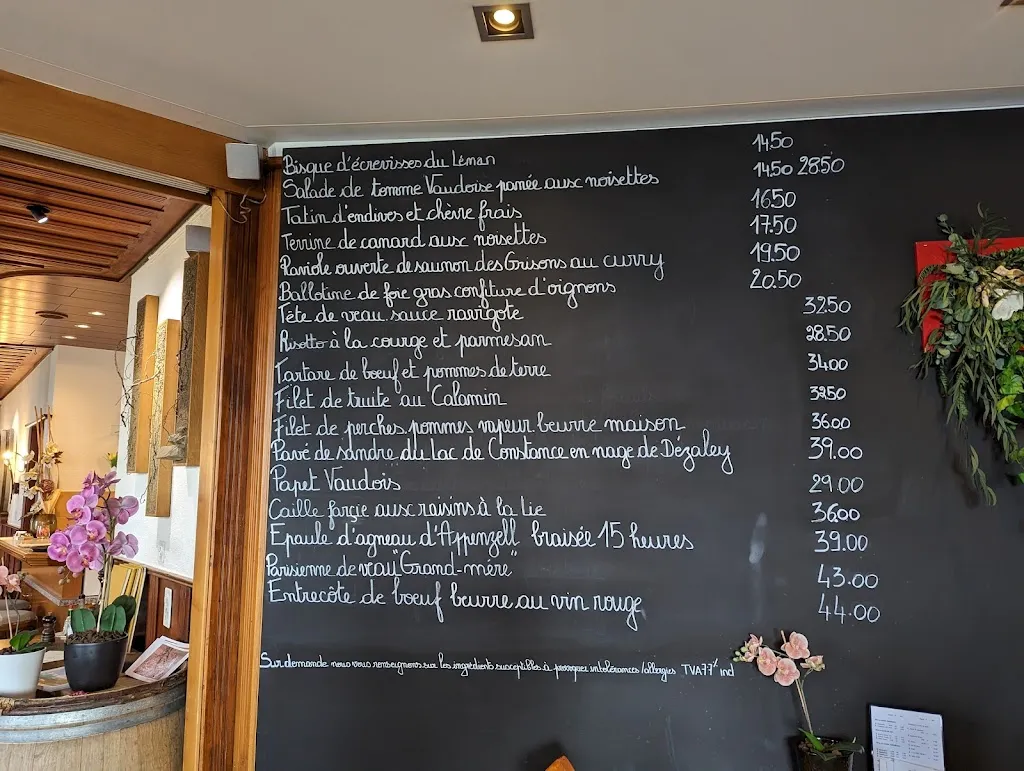 Bisque d'écrevisses du Léman 14.50
Salade de tomme Vaudoise panée aux noisettes 14.50 28.50
Tatin d'endives et chèvre frais 16.50
Terrine de canard aux noisettes 17.50
Raviole ouverte de saumon des Grisons au curry 19.50
Ballotine de foie gras confiture d'oignons 20.50
Tête de veau sauce ravigote 32.50
Risotto à la courge et parmesan 28.50
Tartare de boeuf et pommes de terre 34.00
Filet de truite au Calamin 32.50
Filet de perches pommes vapeur beurre maison 36.00
Pavé de sandre du lac de Constance en nage de Dézaley 39.00
Papet Vaudois 29.00
Caille farçie aux raisins à la lie 36.00
Epaule d'agneau d'Appenzell braisée 15 heures 39.00
Parisienne de veau "Grand-mère" 43.00
Entrecôte de boeuf beurre au vin rouge 44.00
Sur demande nous vous renseignons sur les ingrédients susceptibles à provoquer intolérances/allergies TVA 7.7% incl